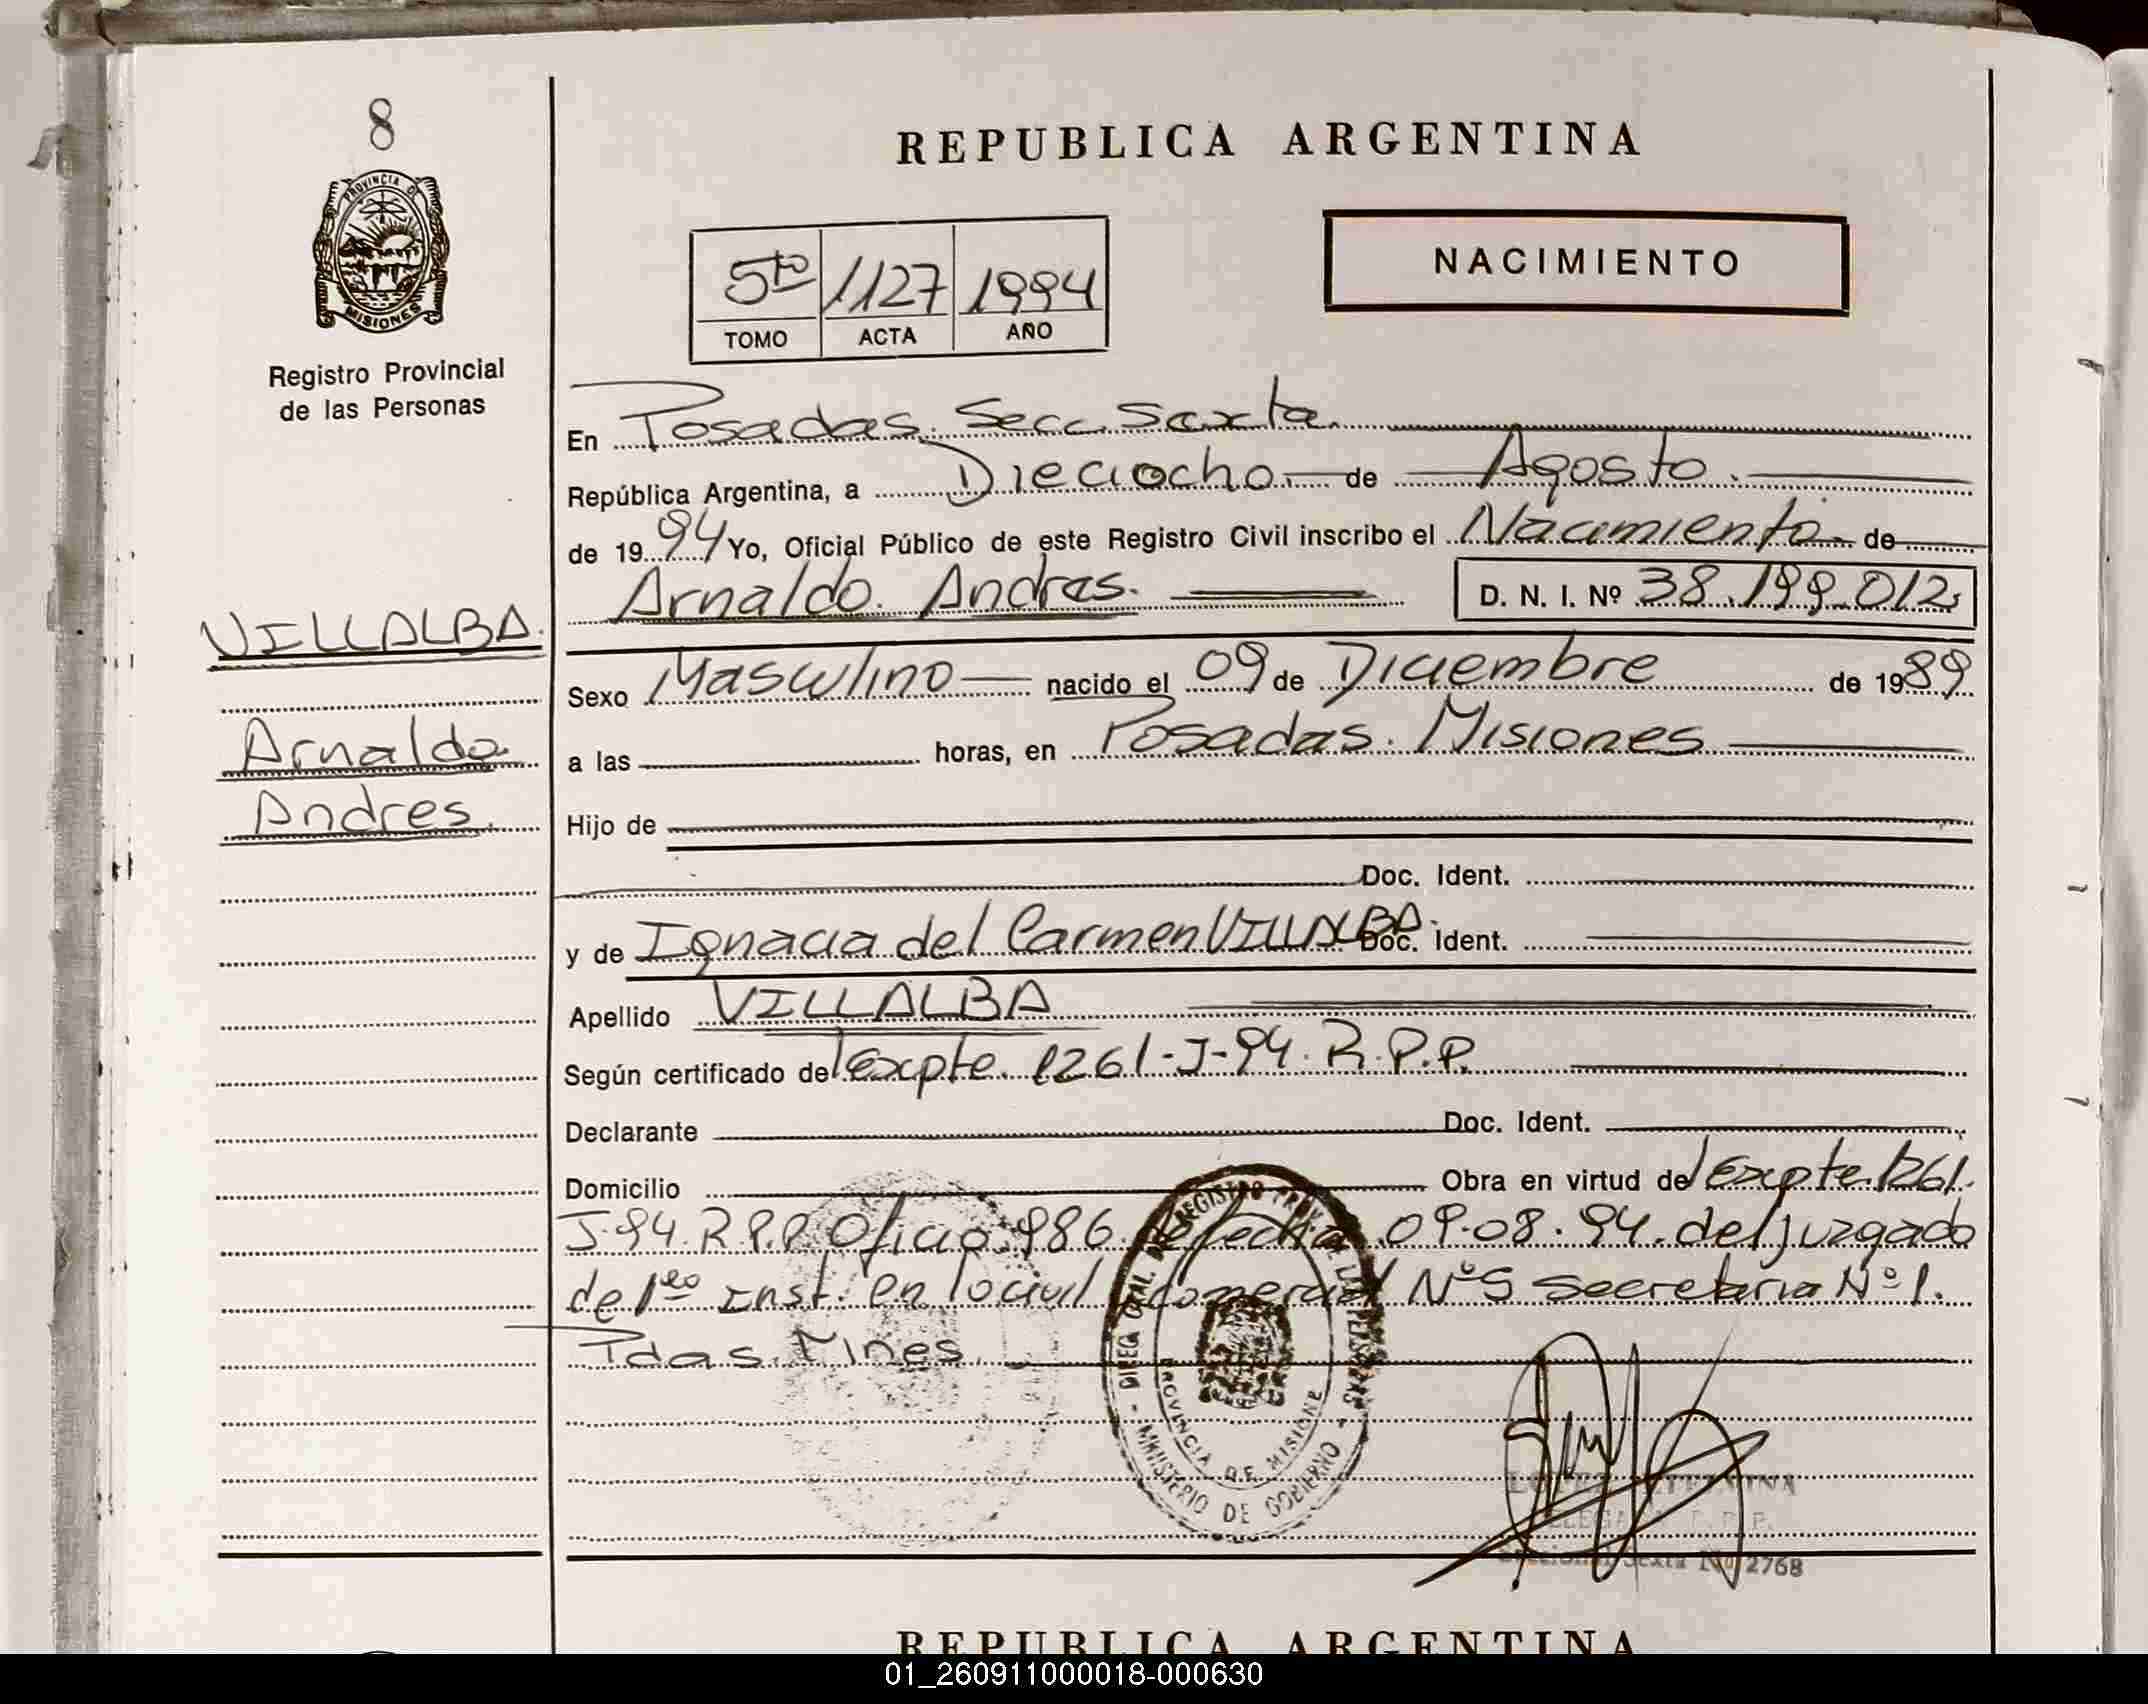 8
PROVINCIA D
MISIONES
Registro Provincial
de las Personas
VILLALBA.
Arnaldo
Andres.
REPUBLICA ARGENTINA
NACIMIENTO
5to 1127 1994
TOMO ACTA AÑO
En Posadas. Secc. Sexta.
República Argentina, a Dieciocho. de Agosto.
de 1994 Yo, Oficial Público de este Registro Civil inscribo el Nacimiento. de
Arnaldo. Andres. D. N. I. Nº 38.199.012.
Sexo Masculino nacido el 09 de Diciembre de 1989
a las horas, en Posadas. Misiones
Hijo de
Doc. Ident.
y de Ignacia del Carmen VILLALBA. Doc. Ident.
Apellido VILLALBA
Según certificado del Expte. 1261-J-94. R.P.P.
Declarante Doc. Ident.
Domicilio Obra en virtud del Expte. 1261.
J-94. R.P.P Oficio. 986. de fecha. 09.08.94. del juzgado
de 1ero Inst. en lo civil comercial Nº 5 Secretaria Nº 1.
Pdas. Mnes.
DIREC. GRAL. DE REGISTRO PROV. DE LAS PERSONAS
PROVINCIA DE MISIONE
- MINISTERIO DE GOBIERNO -
Sexta No 2768
REPUBLICA ARGENTINA
01_260911000018-000630